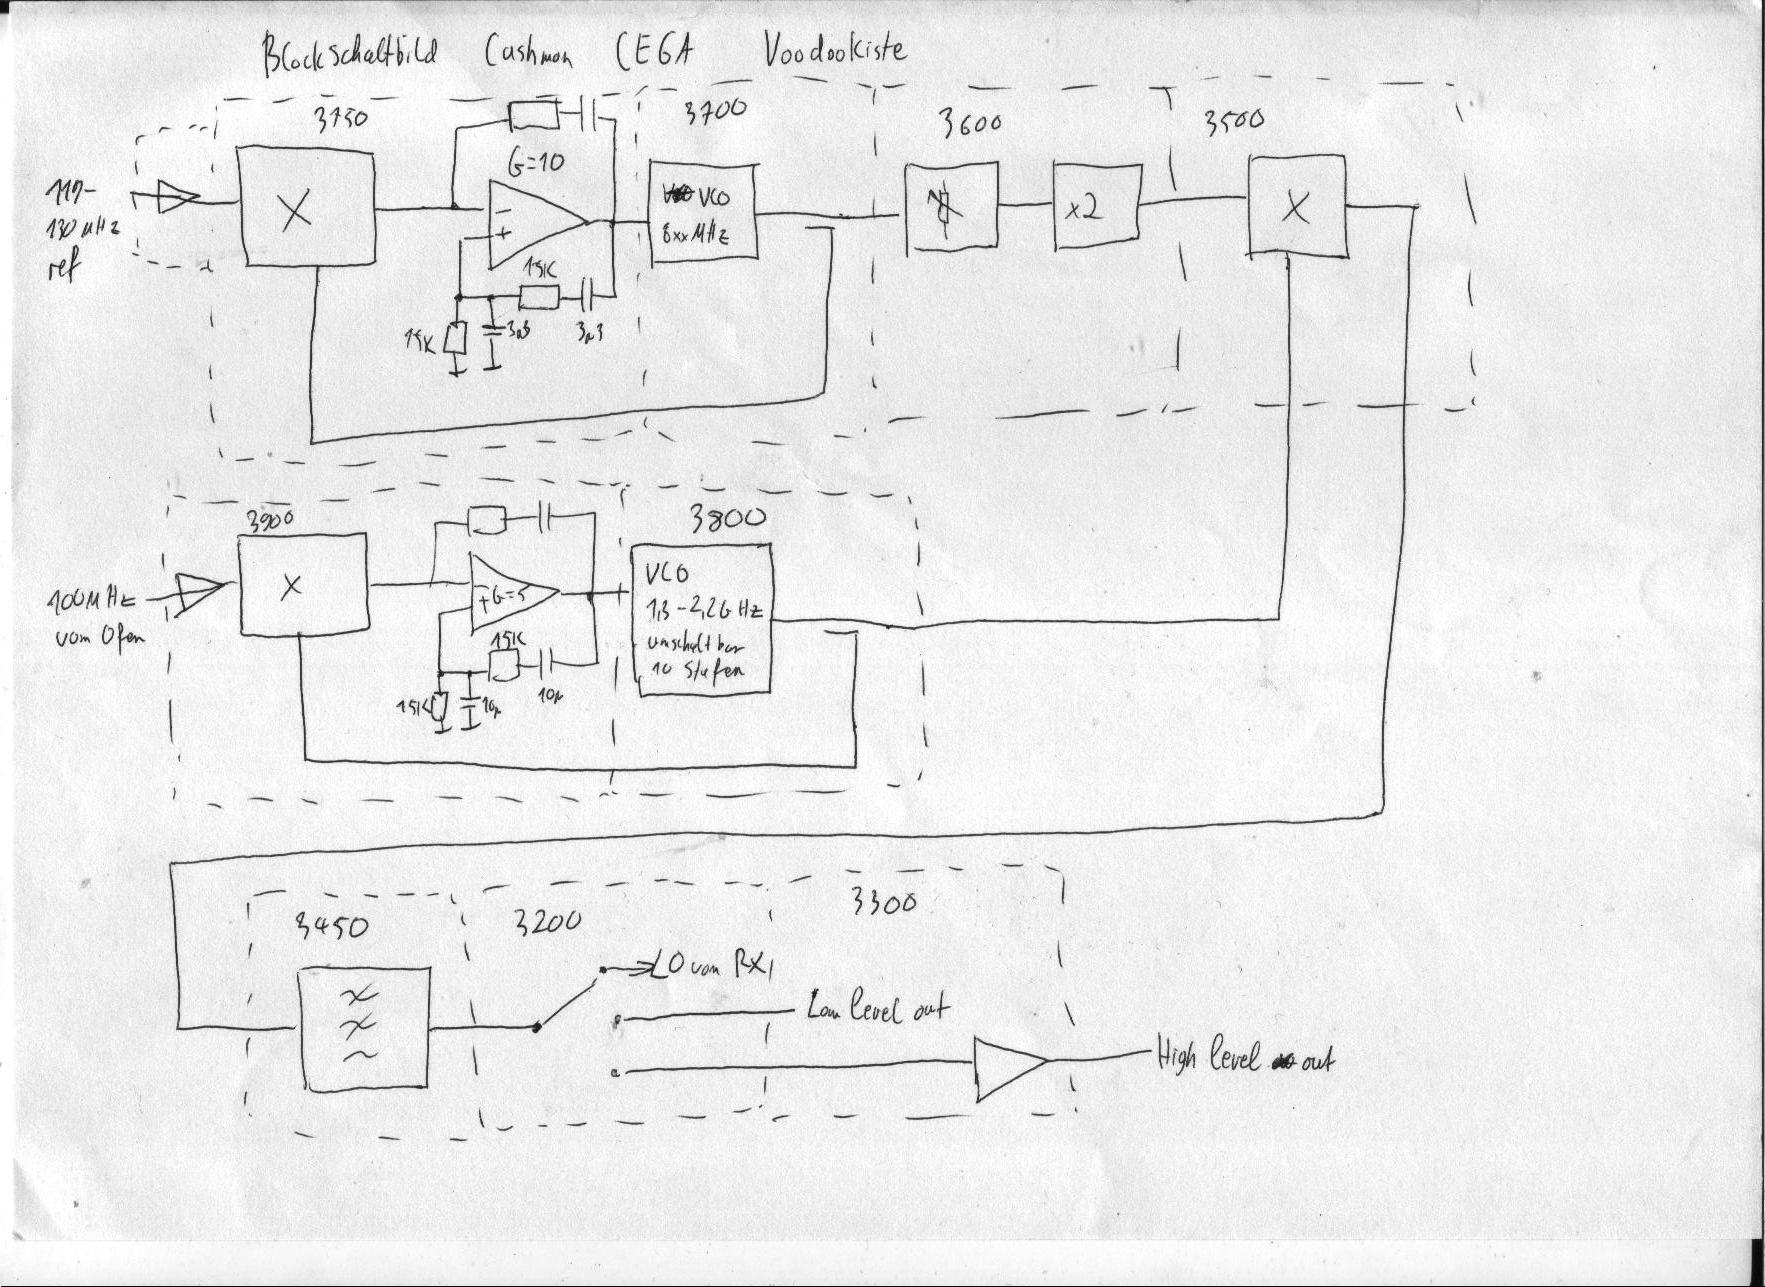 Blockschaltbild Cushman CE6A Voodookiste
3750
3700
3600
3500
G=10
130 MHz
ref
X
VCO
8xxMHz
x2
X
-
+
15K
15K
3n3
3n3
3900
3800
100MHz
vom Ofen
X
G=5
-
+
VCO
1,3-2,2GHz
umschaltbar
10 Stufen
15K
15K
10n
10n
3450
3200
3300
LO vom RX
Low level out
High level out